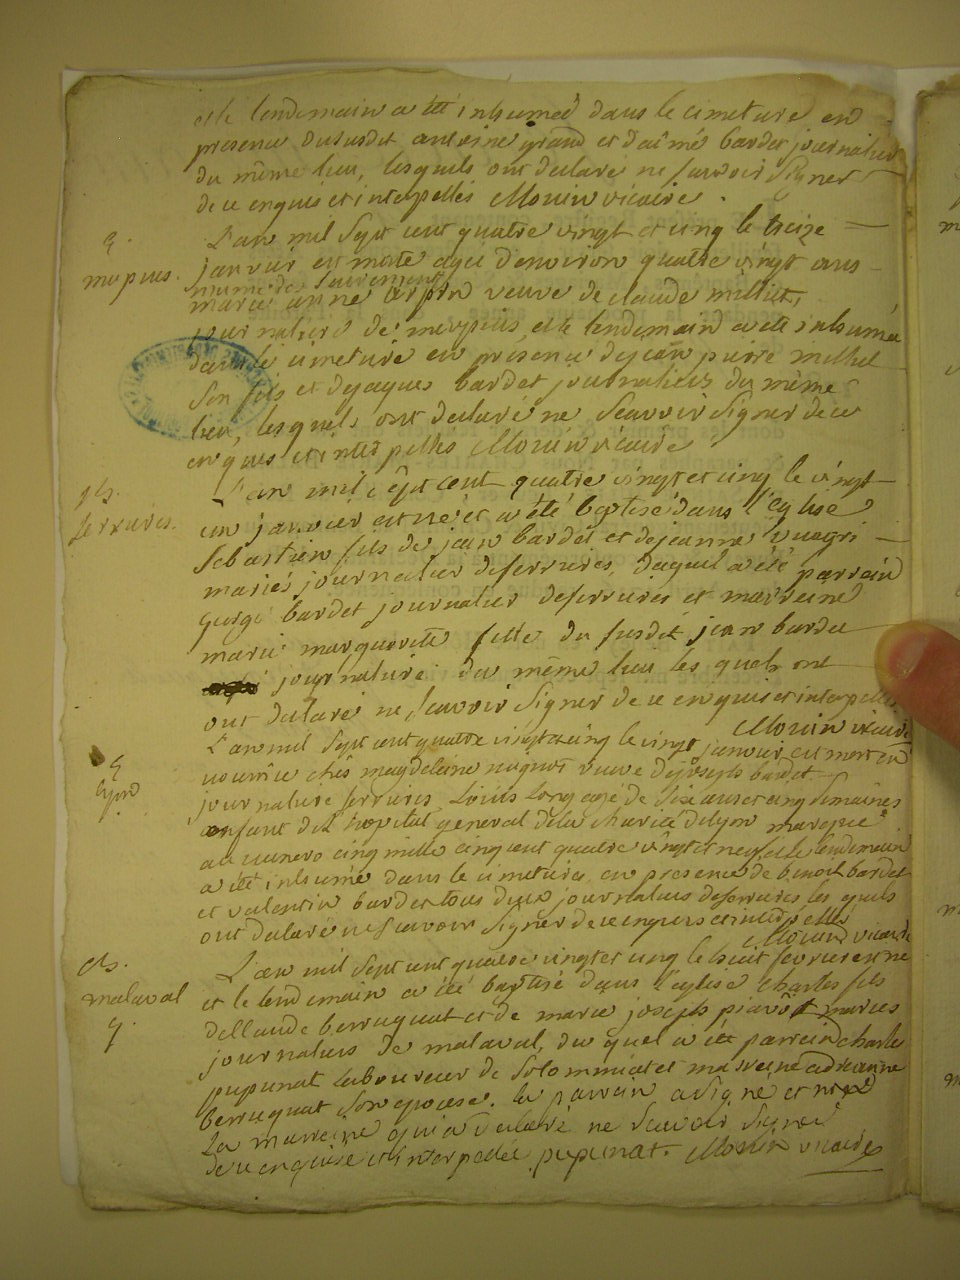 et le lendemain a été inhumé dans le cimetiere en
presence dususdit antoine grand et d'aimé bardet journalier
du même lieu, lesquels ont declaré ne sçavoir signer
de ce enquis et interpellés Monin vicaire.
L'an mil sept cent quatre vingt et cinq le treize
janvier est morte agée d'environ quatre vingt ans
munie des Sacrements
marie anne veuve de claude milliet,
journaliere de meypins et le lendemain a été inhumée
dans le cimetiere en présence de jean pierre milliet
son fils et de jaques bardet journaliers du même
lieu, lesquels ont declaré ne sçavoir signer de ce
enquis et interpellés Monin vicaire.
L'an mil sept cent quatre vingt et cinq le vingt
un janvier est né et a été baptisé dans l'eglise
Sebastien fils de jean bardet et de jeanne
mariés journalier de ferrieres, duquel a été parrain
george bardet journalier de ferrieres et marreine
marie marguerite fille du susdit jean bardet
journaliere du même lieu les quels ont
ont declaré ne sçavoir signer de ce enquis et interpellés
Monin vicaire
L'an mil sept cent quatre vingt et cinq le vingt janvier est mort en
nourrice chés magdeleine veuve de joseph bardet
journaliere ferrieres, Louis Long agé de six ans et cinq semaines
enfant de L'hopital general de la charité de lyon marqué
au numero cinq mille cinq cent quatre vingt et neuf, et le lendemain
a été inhumé dans le cimetiere en presence de benoit bardet
et valentin bardet tous deux journaliers de ferrieres les quels
ont declaré ne sçavoir signer de ce enquis et interpellés
Monin vicaire
L'an mil sept cent quatre vingt et cinq le huit fevrier est né
et le lendemain a été baptisé dans l'eglise charles fils
de Claude berruquat et de marie joseph mariés
journaliers de malaval, du quel a été parrain charle
pupunat Laboureur de Solommiat et marreine adrianne
berruquat son epouse. le parrain a signé et non
La marreine qui a declaré ne sçavoir signer
de ce enquise et interpellée pupunat. Monin vicaire
meypins.
ferrieres.
Lyon
malaval